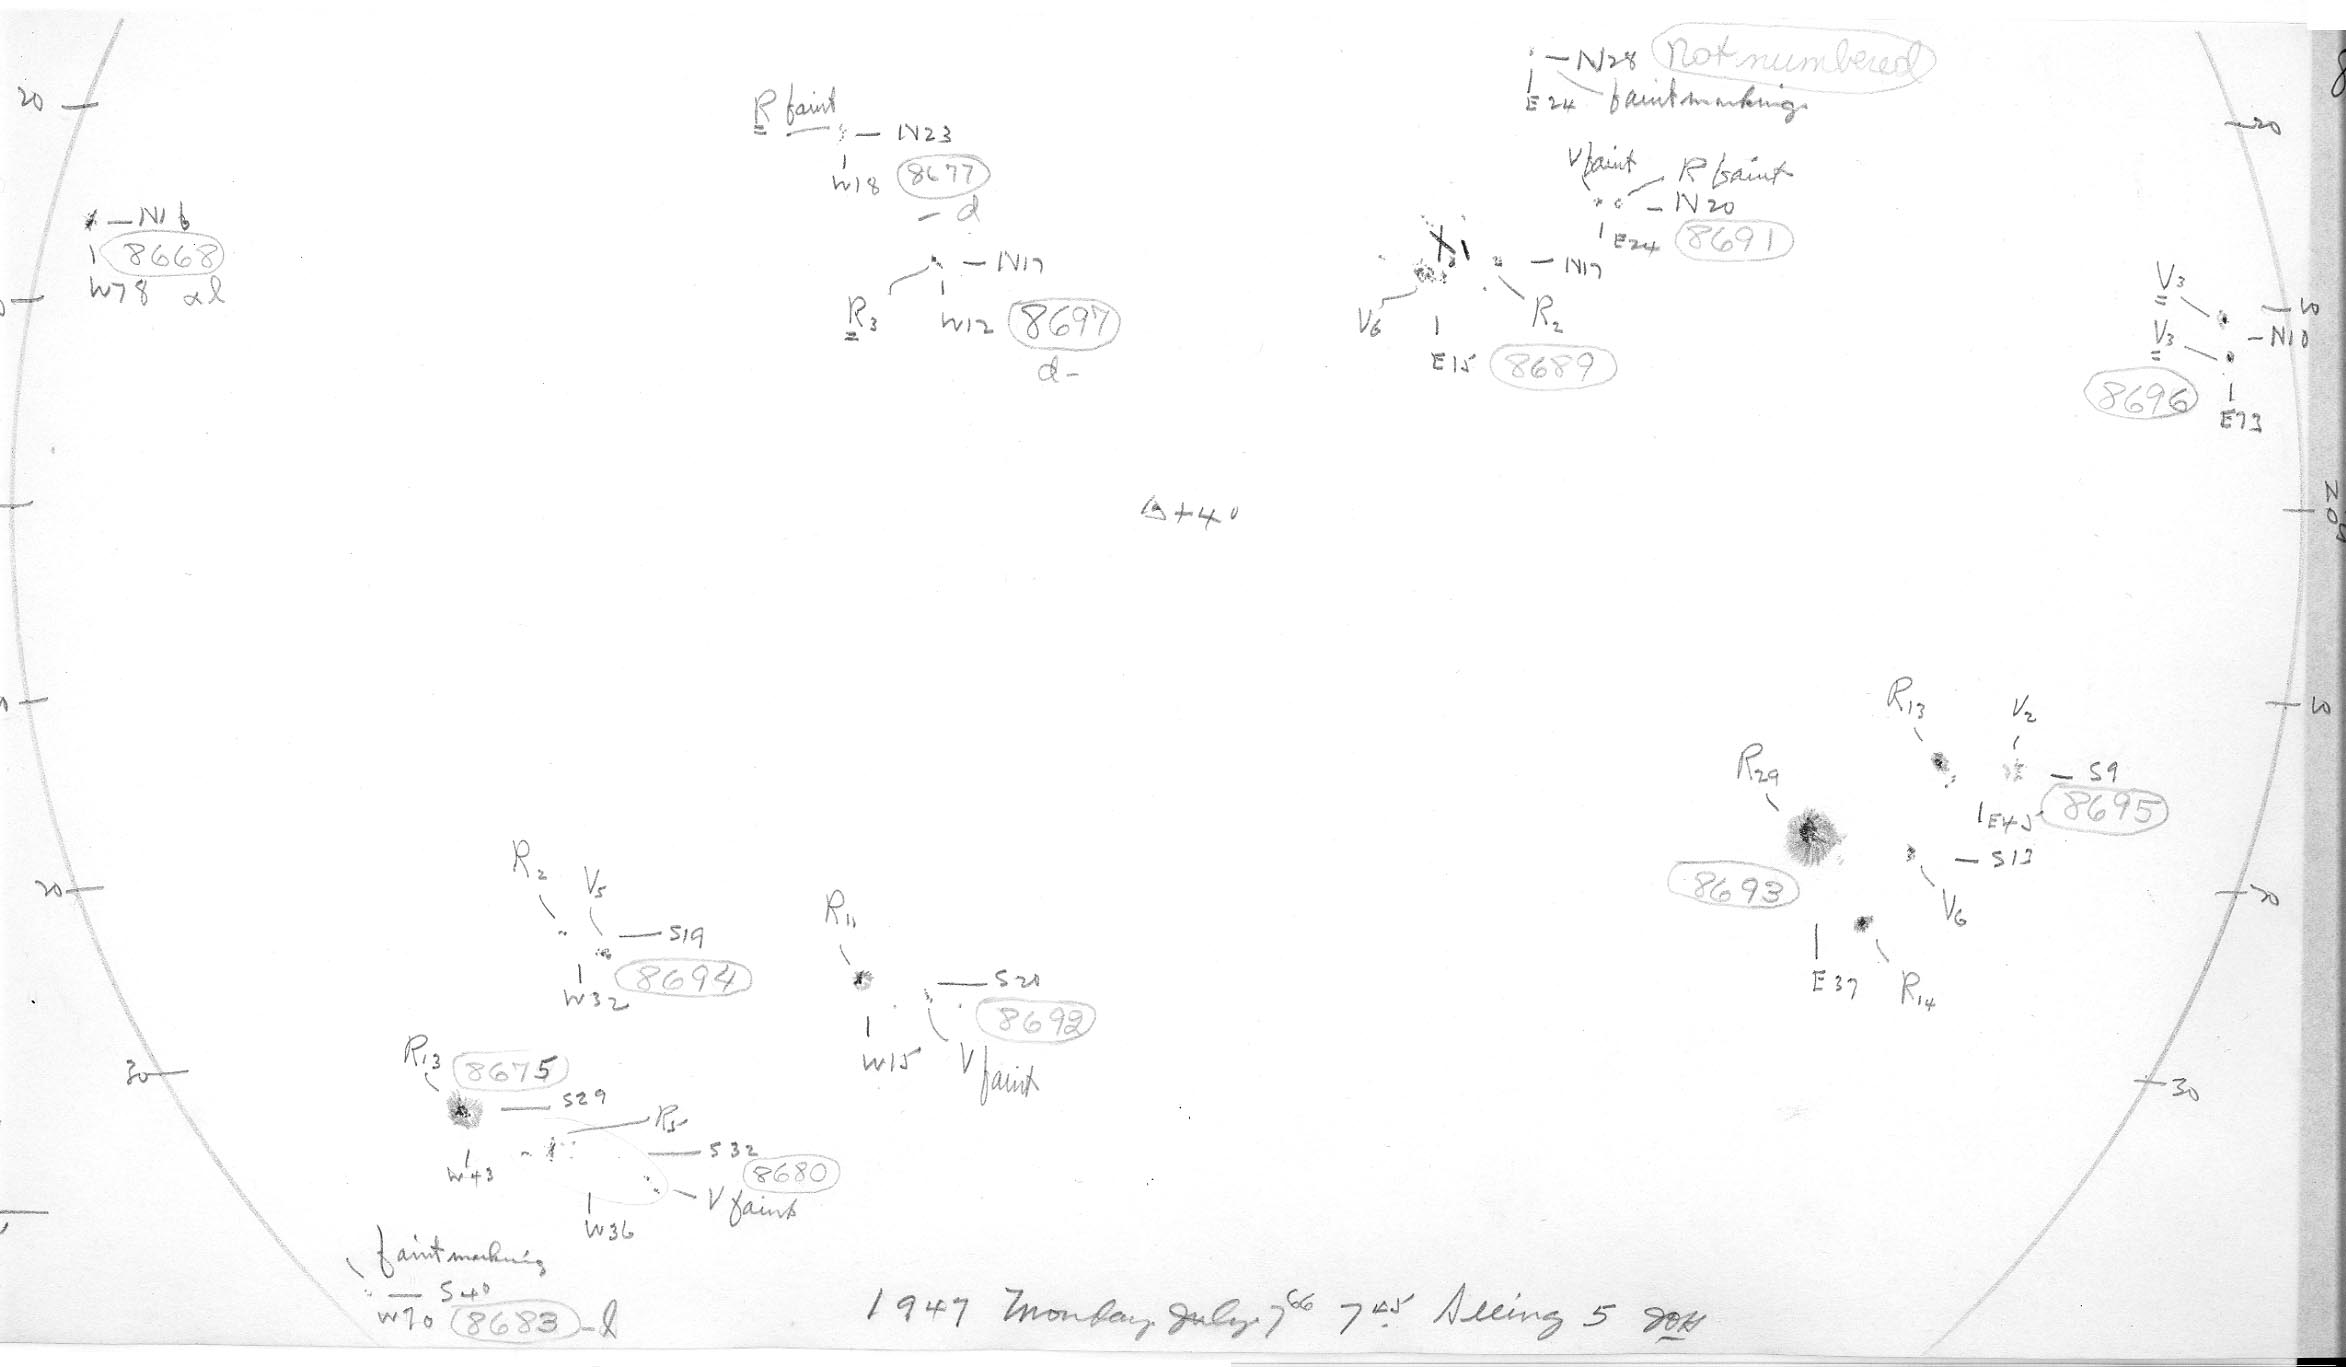 N28 Not numbered
E24 faint markings
20
R faint N23
W18 8677
d
V faint R faint
N20
E24 8691
20
N16
8668
W78 αl
N17
R3 W12 8697
d-
N17
V6 R2
E15 8689
V3 10
V3 N10
8696
E73
+4°
10
R13 V2
R29 S9
E45 8695
S13
8693
V6
E37 R14
20
20
R2 V5
S19
8694
W32
R11
S20
8692
W15 V faint
30
R13 8675
S29
R5
S32
W43 8680
V faint
W36
30
faint marking
S40
W70 8683 -l
1947 Monday July 7 7 45 Seeing 5